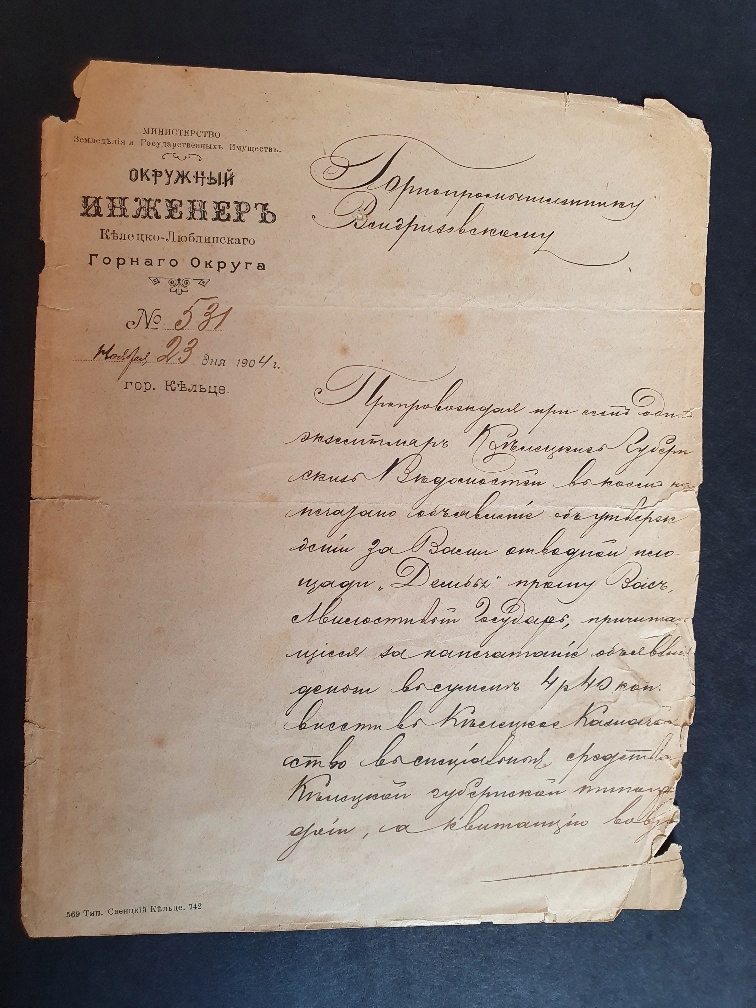 МИНИСТЕРСТВО
Земледѣлія и Государственныхъ Имуществъ.
ОКРУЖНЫЙ
ИНЖЕНЕРЪ
Кѣлецко-Люблинскаго
Горнаго Округа
№ 531
Ноября 23 дня 1904 г.
гор. Кѣльце.
Горнопромышленнику
Препровождая при семъ одинъ
экземпляръ Кѣлецкихъ Губерн
скихъ Вѣдомостей въ коемъ на
печатано объявленіе объ утверж
деніи за Вами отводной пло
щади прошу Васъ,
Милостивый Государь, причитаю
щіеся за напечатаніе объявленія
деньги въ суммѣ 4 р 40 коп.
внести въ Кѣлецкое Казначей
ство въ спеціальныя средства
Кѣлецкой губернской типогра
фіи, а квитанцію
569 Тип. Свенцкій Кѣльце. 742